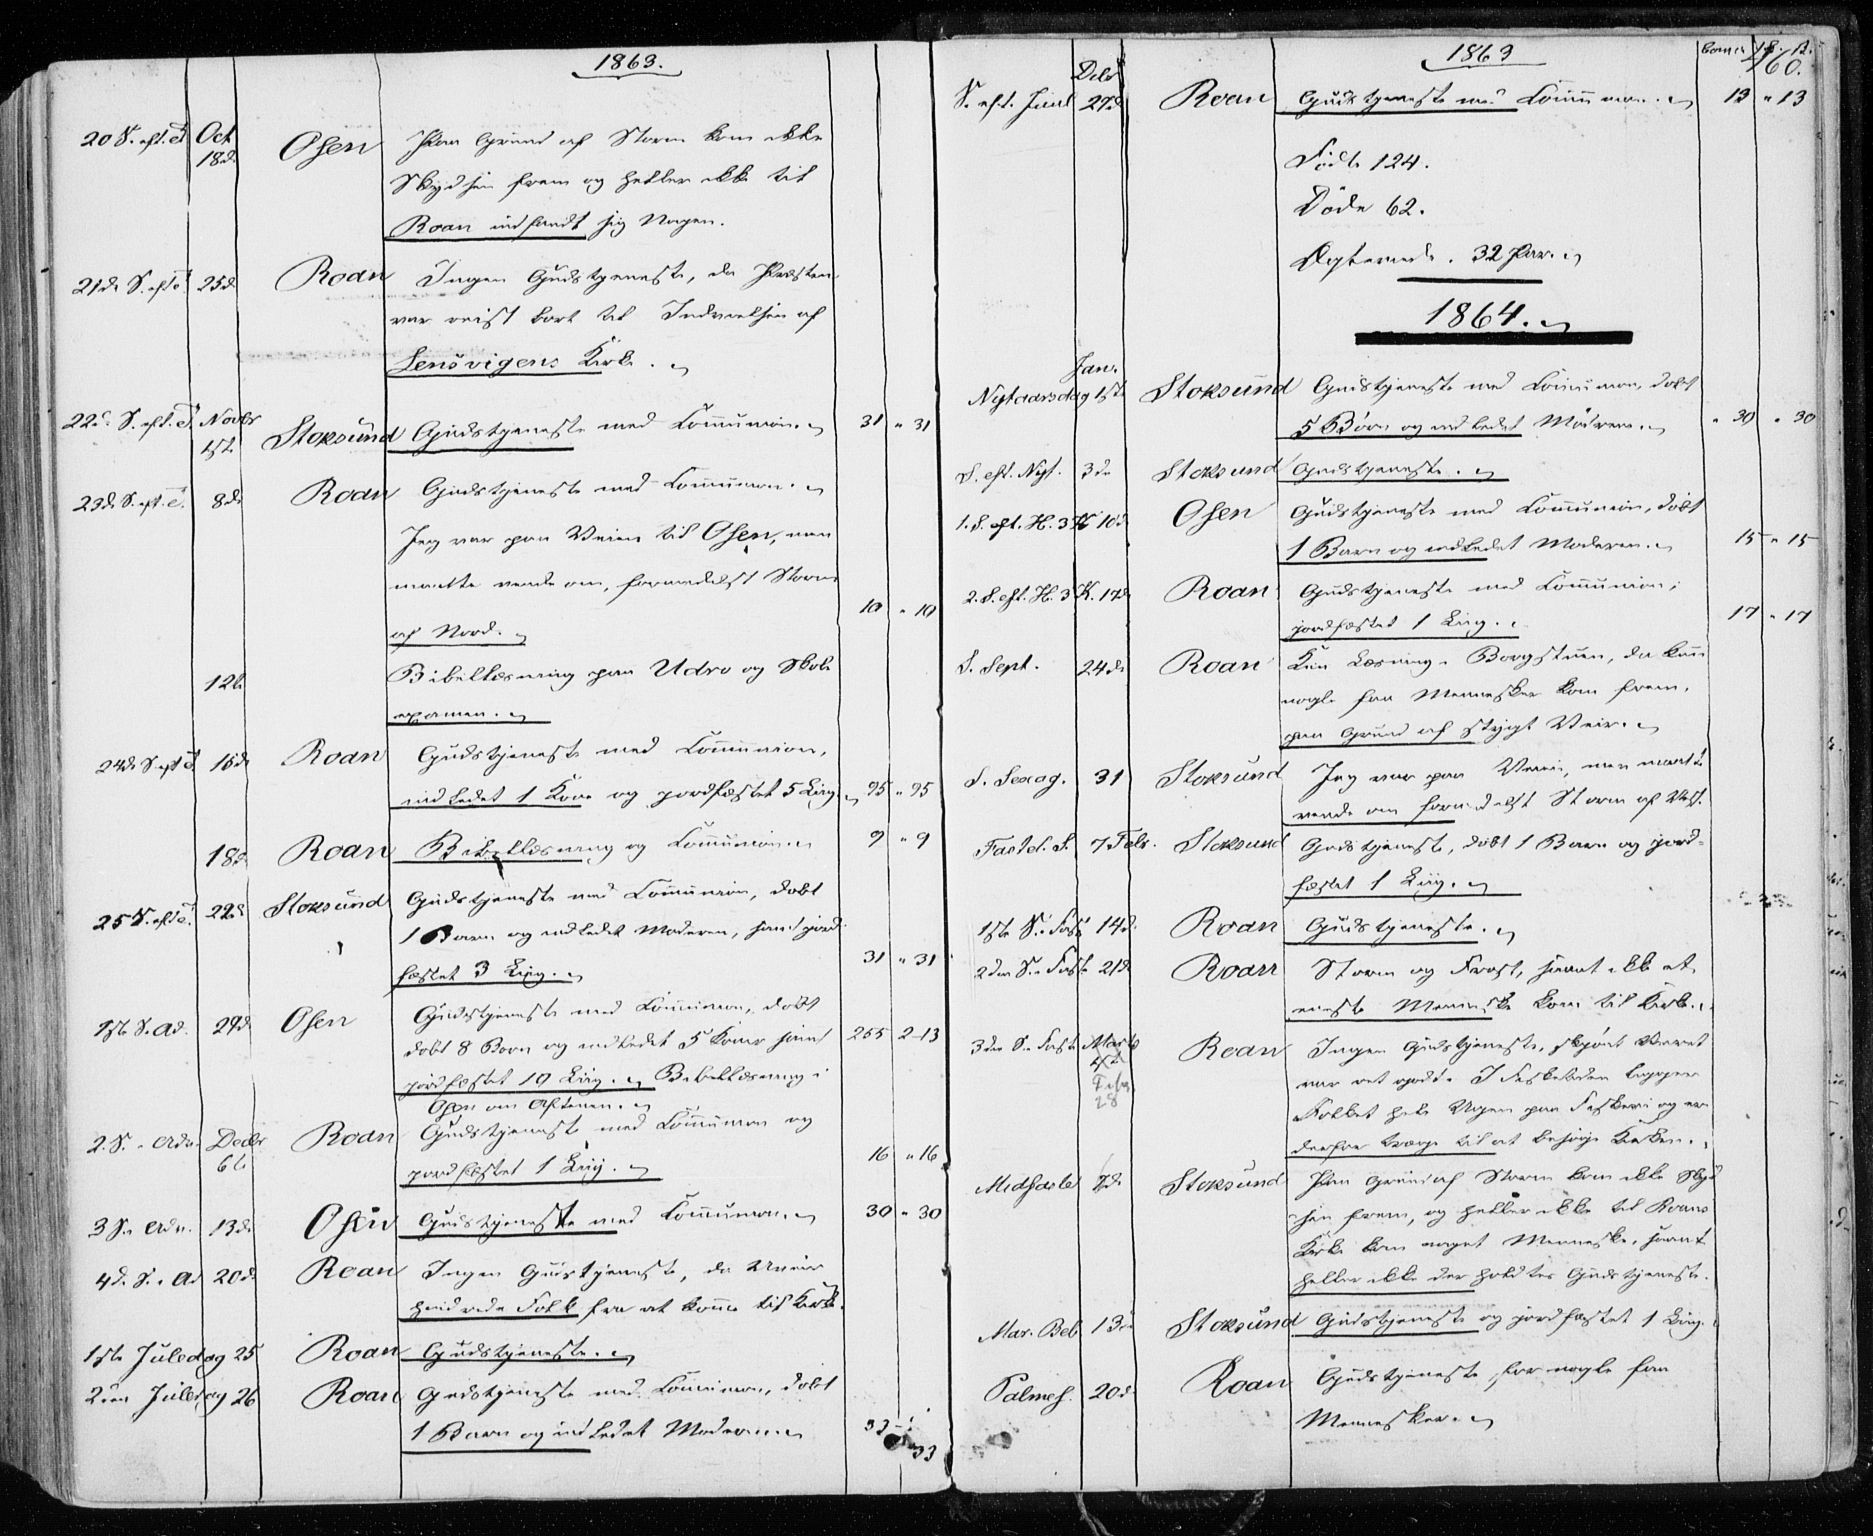 1863.
20 S. eft. T. Oct 18d. Osen Paa Grund af Storm kom ikke
Skydsen frem og heller ikke til
Roan indfandt sig Nogen.
21de S. eft T. 25d. Roan Ingen Gudstjeneste, da Præsten
var reist bort til Indvielsen af
Lensvigens Kirke.
22d. S. eft. T. Novbr 1ste Stoksund Gudstjeneste med Communion. 31 " 31
23de S. eft. T. 8de Roan Gudstjeneste med Communion.
Jeg var paa Veien til Osen, men
maatte vende om, formedelst Storm 10 " 10
af Nord.
12te Bibellæsning paa Udro og Skole
examen.
24de S eft T. 15de Roan Gudstjeneste med Communion,
indledet 1 Kone og jordfæstet 5 Liig. 95 " 95
18de Roan Bibellæsning og Communion 9 " 9
25 S. eft T. 22de Stoksund Gudstjeneste med Communion, døbt
1 Barn og indledet Moderen, samt jord
fæstet 3 Liig. 31 " 31
1ste S. Ad. 29de Osen Gudstjeneste med Communion, døbt
døbt 8 Børn og indledet 5 Koner samt 255 2-13
jordfæstet 10 Liig. Bibellæsning i
Osen om Aftenen.
2. S. i Adv. Decbr 6te Roan Gudstjeneste med Communion og
jordfæstet 1 Liig. 16 " 16
3 S. i Adv. 13de Osen Gudstjeneste med Communion. 30 " 30
4d. S. i Ad 20de Roan Ingen Gudstjeneste, da Veiret
hindrede Folk fra at komme til Kirke.
1ste Juledag 25 Roan Gudstjeneste.
2den Juledag 26 Roan Gudstjeneste med Communion, døbt
1 Barn og indledet Moderen 33 " 33
1863
160.
Decbr
S. eft. Juul 27de Roan Gudstjeneste med Communion. 13 " 13
Fødte 124.
Døde 62.
Ægteviede. 32 Par.
1864.
Jan.
Nytaarsdag 1ste Stoksund Gudstjeneste med Communion, døbt
5 Børn og indledet Mødrene. " 30 " 30
S. eft. Nyt. 3de Stoksund Gudstjeneste.
1. S. eft. H. 3 K 10de Osen Gudstjeneste med Communion, døbt
1 Barn og indledet Moderen. 15 " 15
2. S. eft. H. 3 K. 17de Roan Gudstjeneste med Communion;
jordfæstet 1 Liig. 17 " 17
S. Sept. 24de Roan Kun Læsning i Borgstuen, da kun
nogle faa Mennesker kom frem,
paa Grund af stygt Veir.
S. Sexag. 31 Stoksund Jeg var paa Veien, men maatte
vende om formedelst Storm af Vest.
Fastel. S. 7 Febr. Stoksund Gudstjeneste, døbt 1 Barn og jord-
fæstet 1 Liig.
1ste S. i Fast 14d. Roan Gudstjeneste.
2den S. i Faste 21de Roan Storm og Frost, saa at ikke et
eneste Menneske kom til Kirke.
3die S. i Faste Marts Febr 28 Roan Ingen Gudstjeneste, skjønt Veiret
var ret godt. I Fisketiden ligger
Folket hele Ugen paa Fiskeri og er
derfor træge til at besøge Kirken.
Midfaste Stoksund Paa Grund af Storm kom ikke Skyd
sen frem, og heller ikke til Roans
Kirke kom noget Menneske, saa at
heller ikke der holdtes Gudstjeneste.
Mar. Beb. 13de Stoksund Gudstjeneste og jordfæstet 1 Liig.
Palmes. 20d. Roan Gudstjeneste for nogle faa
Mennesker.